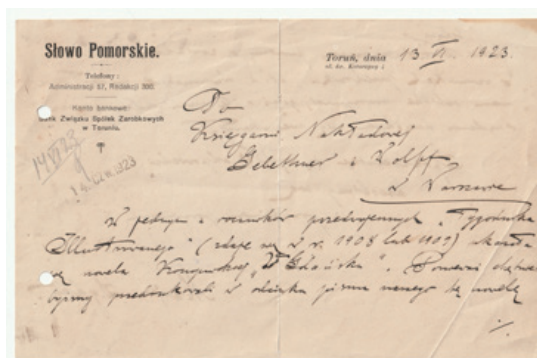 Słowo Pomorskie.
Telefony:
Administracji 67, Redakcji 390.
Konto bankowe:
Bank Związku Spółek Zarobkowych
w Toruniu.
Toruń, dnia 13 VI 1923.
ul. św. Katarzyny
14 VI 23
Do
Księgarni Nakładowej
Gebethner i Wolff
w Warszawie
W jednym z roczników przedwojennych „Tygodnika
Illustrowanego” (zdaje się z r. 1908 lub 1909) ukazała
się nowela Konopnickiej „W Gdańsku”. Ponieważ chętnie
byśmy przedrukowali w odcinku pisma naszego tę nowelę
./.